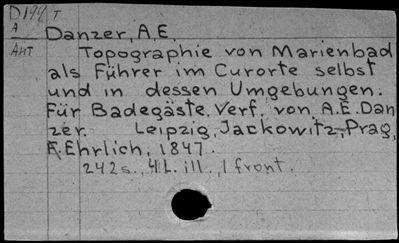 D194 T
A Danzer, A.E.
Ант Topographie von Marienbad
als Führer im Curorte selbst
und in dessen Umgebungen.
Für Badegäste. Verf. von A.E. Dan
zer. Leipzig, Jackowitz, Prag,
F. Ehrlich, 1847.
242s., 4L. ill., 1 front.